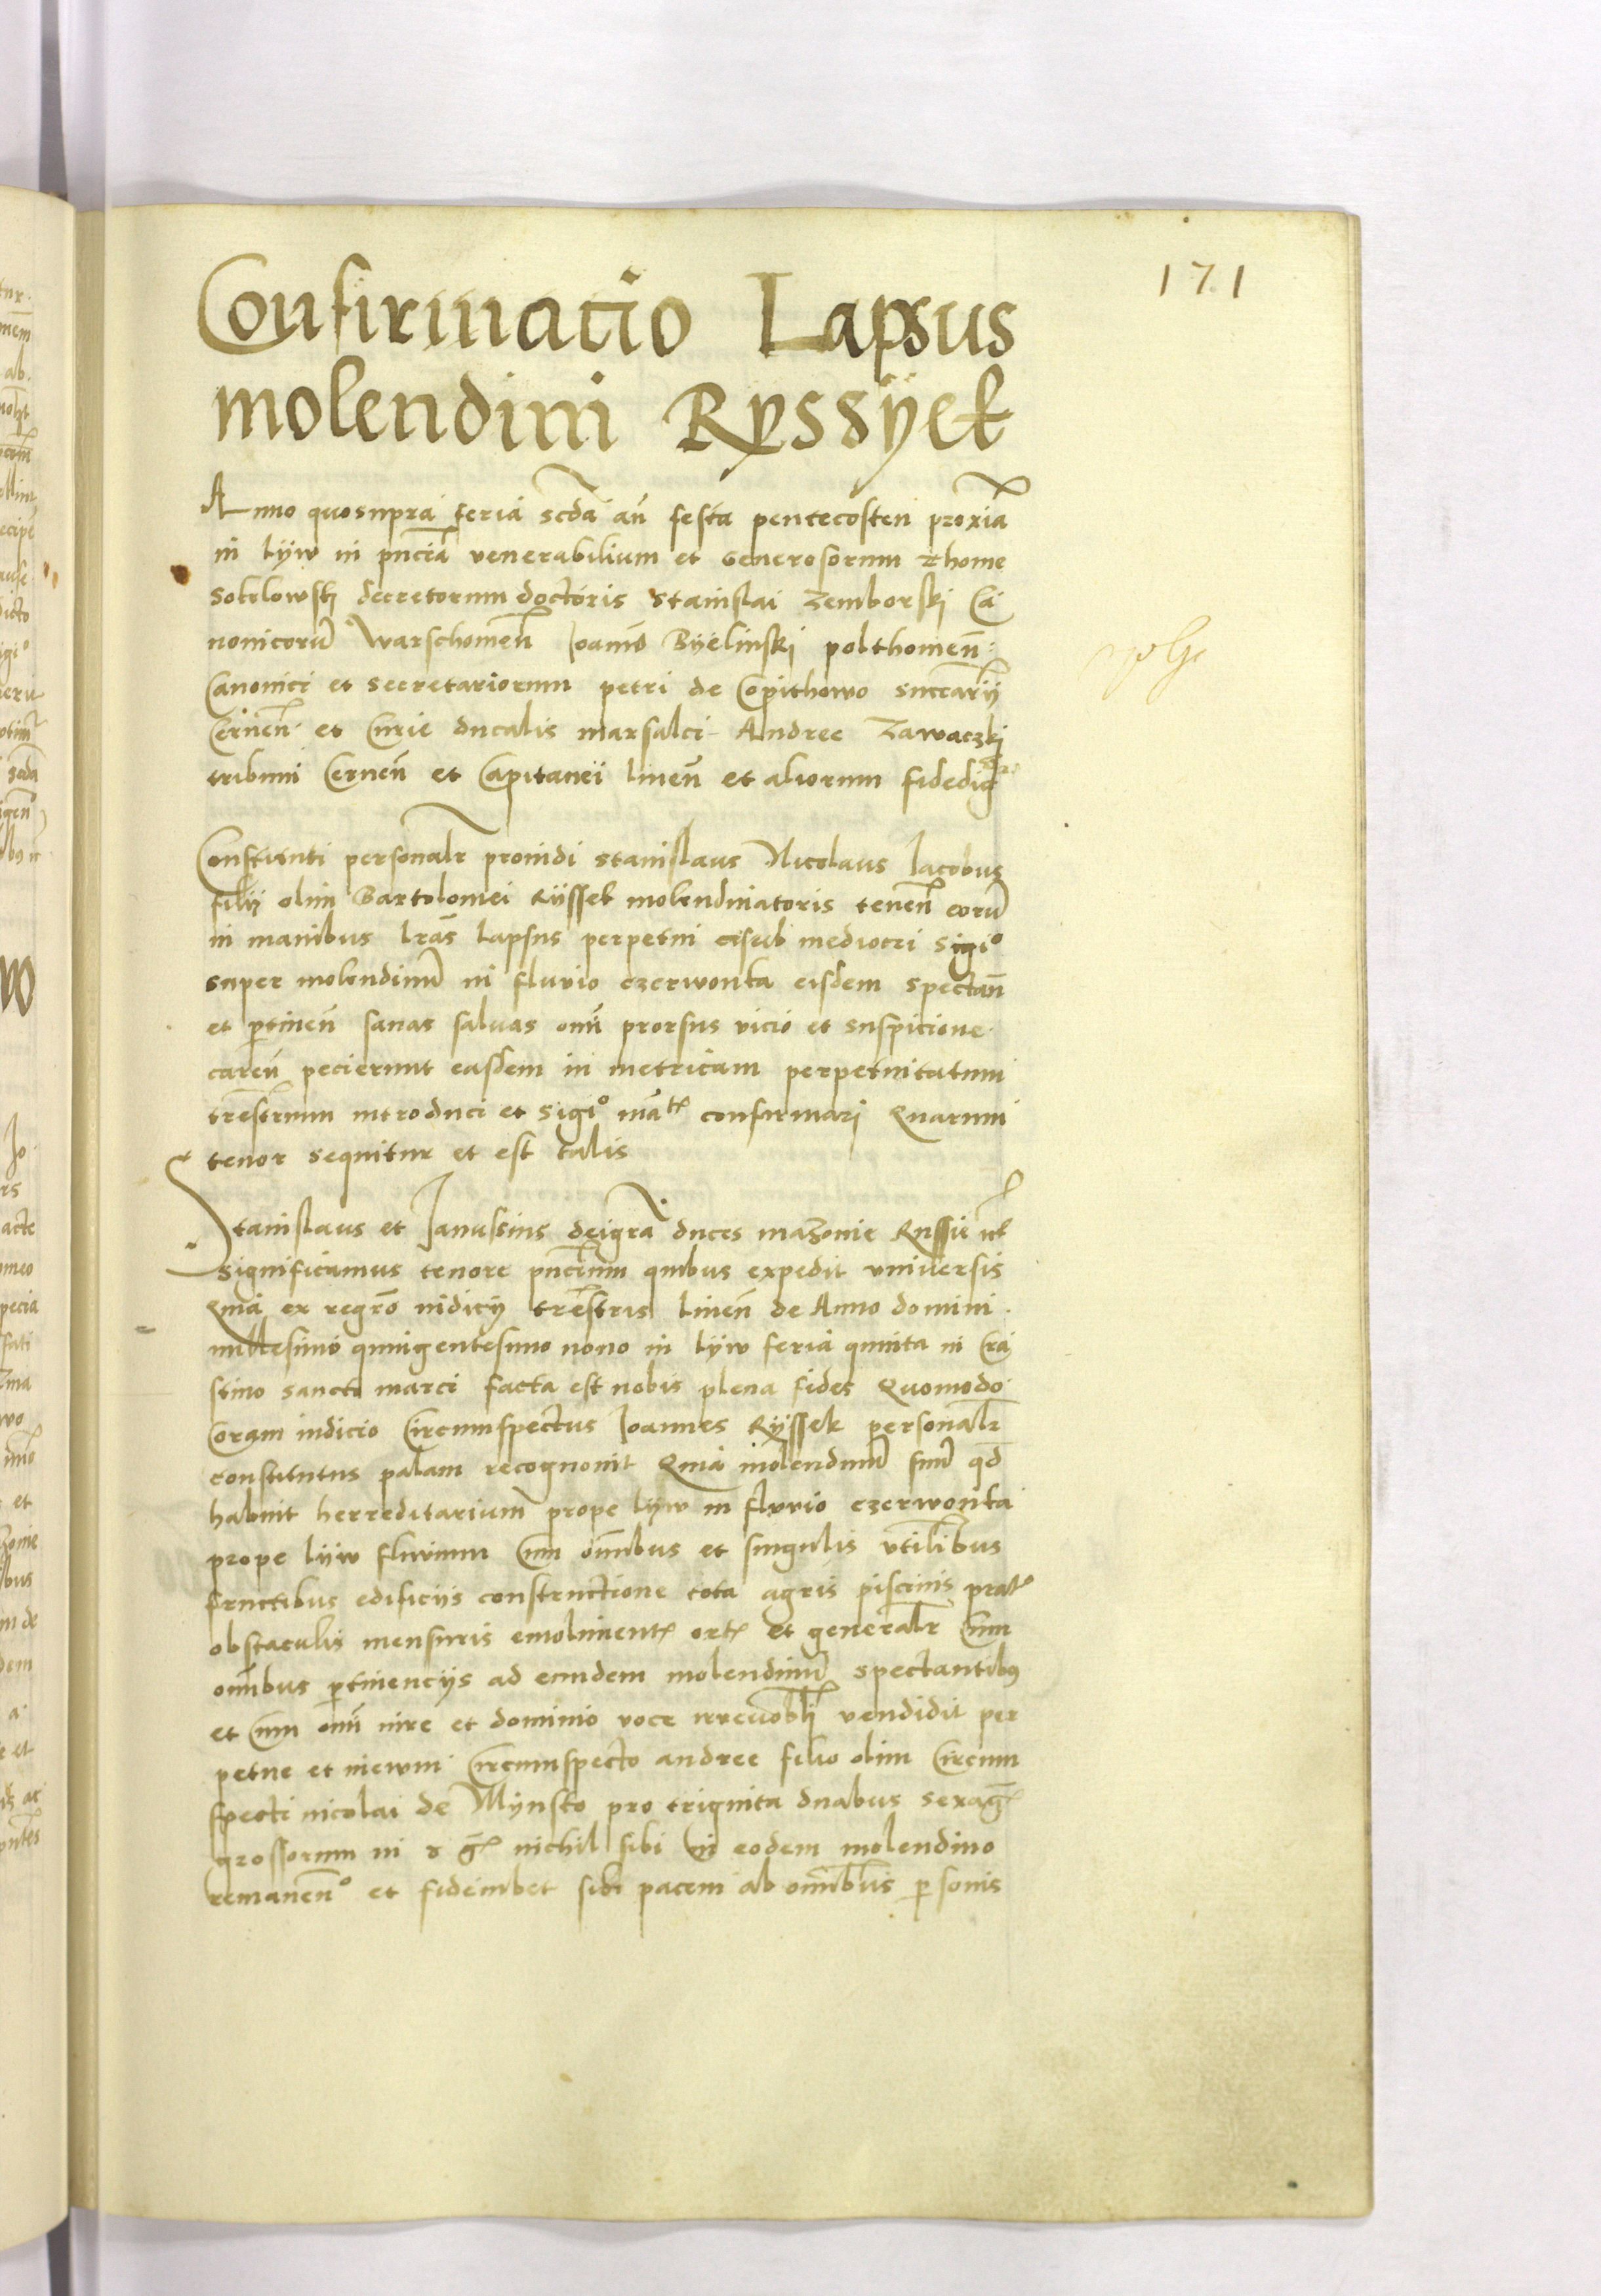 171
Confirmacio Lapsus
molendini Ryssÿek
Anno quosupra feria scda an festa pentecosten proxia
in lÿw in pncia venerabilium et Generosorum Thome
Sokolowski decretorum doctoris Stanislai Zemborski Ca
nonicoru Warschowien Ioannis Bÿelinski polthowien
Canonici et secretariorum petri de Copithowo succarÿ
Cernen et Curie ducalis marsalci Andree Zawaczkj
tribuni Cernen et Capitanei liuen et aliorum fidedig
Constituti personalr prouidi Stanislaus Nicolaus Iacobus
filÿ olim Bartolomei Rÿssek molendinatoris tenen eoru
in manibus lras lapsus perpetui et sub mediocri sigio
super molendinu in fluvio czerwonka eisdem spectan
et ptinen sanas saluas omi prorsus vicio et suspicione
caren pecierunt easdem in metricam perpetuitatum
trestrium introduci et sigio confirmari Quarum
tenor sequitur et est talis
Stanislaus et Ianussius deigra duces mazouie Russie
significamus tenore pncium quibus expedit vniuersis
Quia ex regro iudicÿ trestris liuen de Anno domini
millesimo quingentesimo nono in lÿw feria quinta in Cra
stino sancti marci facta est nobis plena fides Quomodo
Coram iudicio Circumspectus Ioannes Rÿssek personalr
constitutus palam recognouit Quia molendinu suu qd
habuit herreditarium prope lÿw in fluvio czerwonka
prope lÿw fluuium Cum omibus et singulis vtilibus
fructibus edificÿs constructione tota agris piscinis prat
obstaculis mensuris emoliment ort et generalr Cum
omibus ptinencÿs ad eundem molendinu spectantibus
et Cum omi iure et dominio voce irreuobli vendidit per
petue et in ewm Circumspecto andree filio olim Circum
specti nicolai de Mÿnsko pro triginta duabus sexag
grossorum in nichil sibi in eodem molendino
remaneno et fideiubet sibi pacem ab omibus psonis